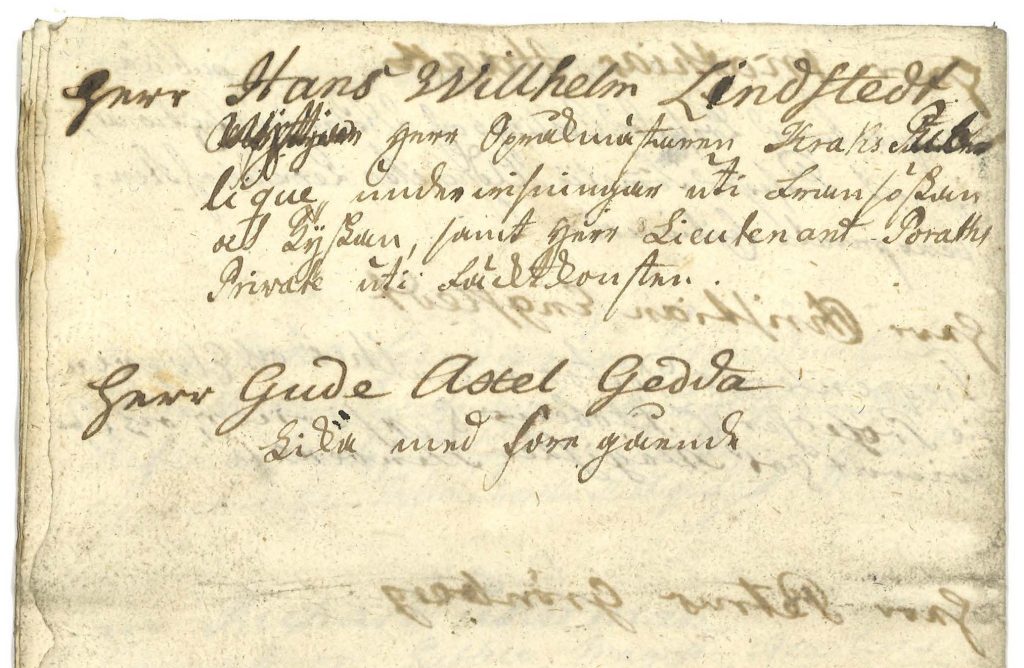 Herr Hans Willhelm Lindstedt
Herr Språkmästaren Kraks Pub
lique, undervisningar uti Fransöskan
och Tyskan, samt Herr Lieutenant Poraths
Private uti Fäcktkonsten.
Herr Gude Axel Gedda
Lika med foregående